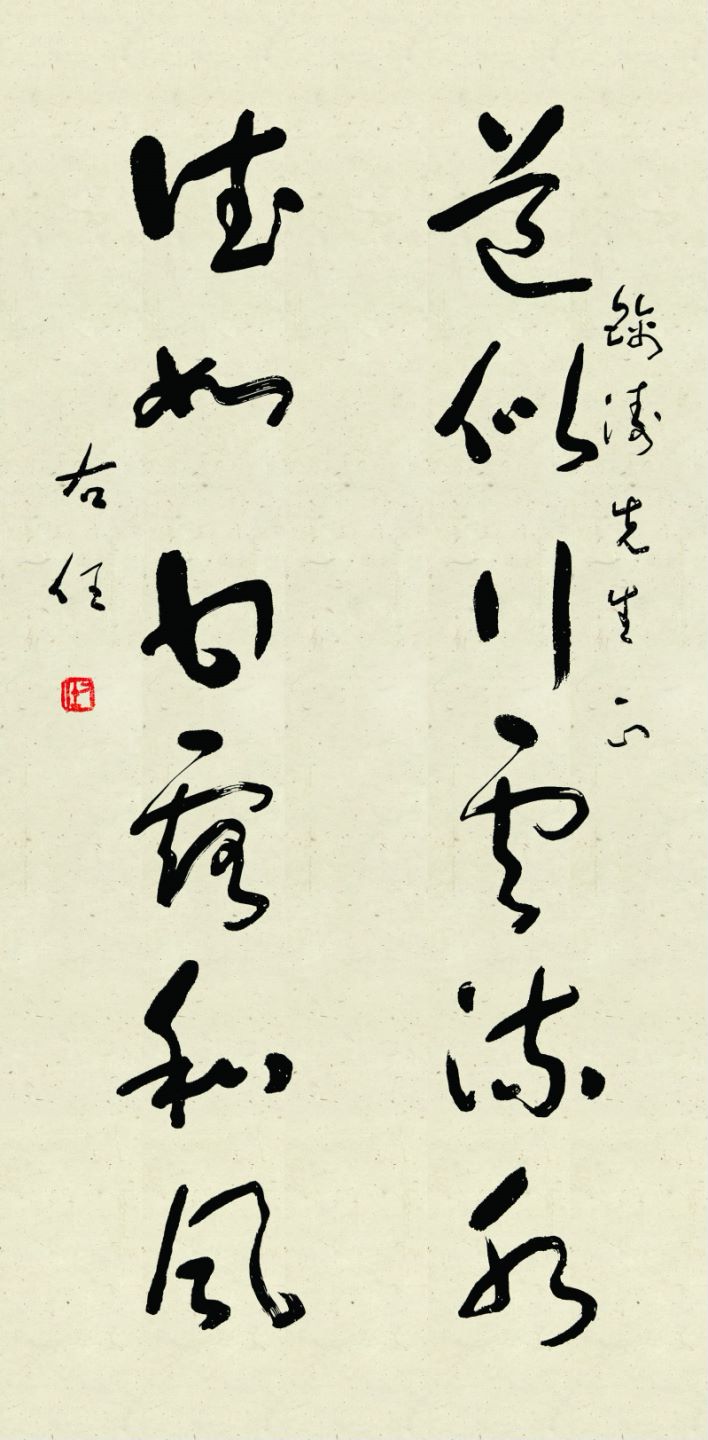 道似行雲流水
涛先生正
德如甘露和風
右任